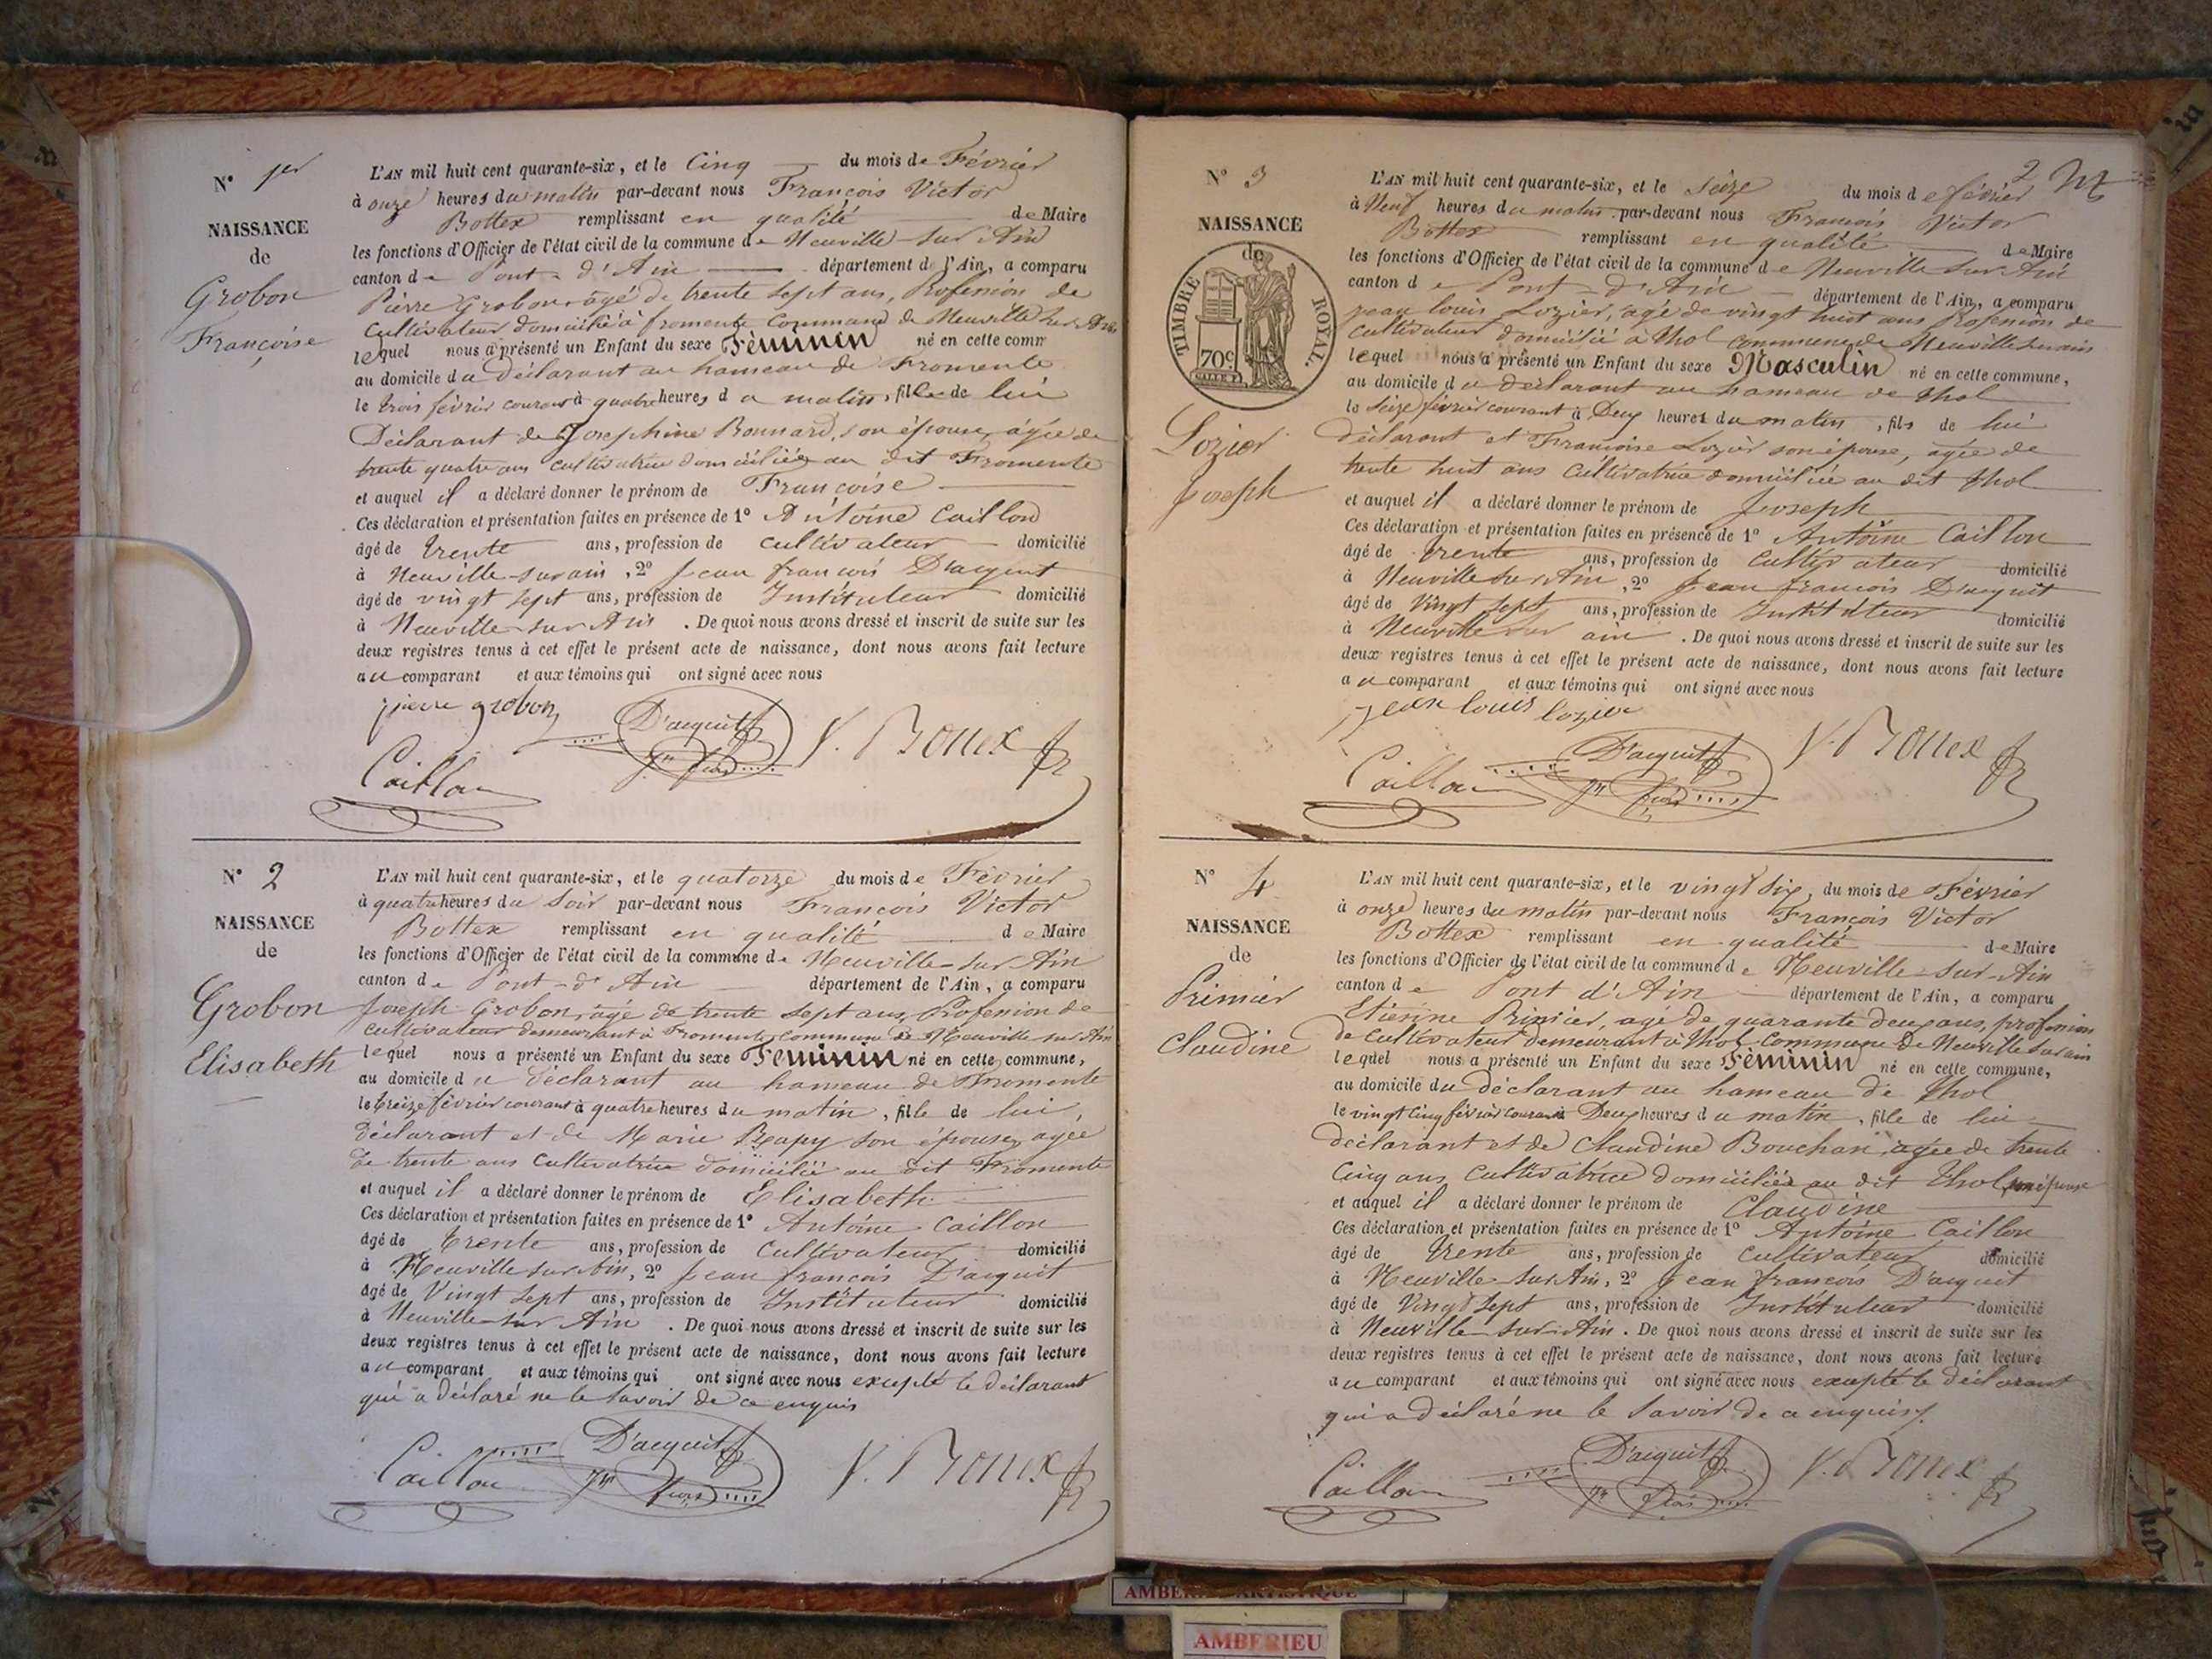 N° 1er
NAISSANCE
de
Grobon
Françoise
L'AN mil huit cent quarante-six, et le Cinq du mois de Février
à onze heures du matin par-devant nous François Victor
Bottex remplissant en qualité de Maire
les fonctions d'Officier de l'état civil de la commune de Neuville-sur Ain
canton de Pont-d'Ain département de l'Ain, a comparu
Pierre Grobon, âgé de trente sept ans, Profession de
Cultivateur domicilié à fromente Commune de Neuville sur Ain
lequel nous a présenté un Enfant du sexe Féminin né en cette comm
au domicile du Déclarant au hameau de Fromente
le trois février courant à quatre heures du matin, fille de lui
Déclarant de Josephine Bonnard, son épouse, âgée de
trente quatre ans cultivatrice domiciliée au dit Fromente
et auquel il a déclaré donner le prénom de Françoise
Ces déclaration et présentation faites en présence de 1° Antoine Caillon
âgé de trente ans, profession de cultivateur domicilié
à Neuville-sur ain, 2° Jean françois D'acquit
âgé de vingt sept ans, profession de Instituteur domicilié
à Neuville-sur Ain. De quoi nous avons dressé et inscrit de suite sur les
deux registres tenus à cet effet le présent acte de naissance, dont nous avons fait lecture
au comparant et aux témoins qui ont signé avec nous
pierre grobon
D'acquit
V. Bottex
Caillon
Jn fois
N° 2
NAISSANCE
de
Grobon
Elisabeth
L'AN mil huit cent quarante-six, et le quatorze du mois de Février
à quatre heures du Soir par-devant nous François Victor
Bottex remplissant en qualité de Maire
les fonctions d'Officier de l'état civil de la commune de Neuville-sur Ain
canton de Pont-d'Ain département de l'Ain, a comparu
Joseph Grobon, âgé de trente sept ans, Profession de
Cultivateur demeurant à Fromente Commune de Neuville sur Ain
lequel nous a présenté un Enfant du sexe Feminin né en cette commune,
au domicile du déclarant au hameau de Fromente
le treize février courant à quatre heures du matin, fille de lui,
Déclarant et de Marie Papy son épouse, agée
de trente ans Cultivatrice domiciliée au dit Fromente
et auquel il a déclaré donner le prénom de Elisabeth
Ces déclaration et présentation faites en présence de 1° Antoine Caillon
âgé de trente ans, profession de Cultivateur domicilié
à Neuville sur Ain, 2° Jean françois D'acquit
âgé de Vingt Sept ans, profession de Instituteur domicilié
à Neuville-sur Ain. De quoi nous avons dressé et inscrit de suite sur les
deux registres tenus à cet effet le présent acte de naissance, dont nous avons fait lecture
au comparant et aux témoins qui ont signé avec nous excepté le déclarant
qui a déclaré ne le savoir de ce enquis
D'acquit
Caillon
V. Bottex
2
N° 3
NAISSANCE
de
TIMBRE ROYAL.
70c
Lozier
Joseph
L'AN mil huit cent quarante-six, et le seize du mois de février
à Neuf heures du matin par-devant nous François Victor
Bottex remplissant en qualité de Maire
les fonctions d'Officier de l'état civil de la commune de Neuville sur Ain
canton de Pont-d'Ain département de l'Ain, a comparu
jean louis Lozier, agé de vingt huit ans profession de
cultivateur domicilié à Thol commune de Neuville sur ain
lequel nous a présenté un Enfant du sexe Masculin né en cette commune,
au domicile du déclarant au hameau de Thol
le seize février courant à Deux heures du matin, fils de lui
déclarant et Françoise Lozier son épouse, agée de
trente huit ans Cultivatrice domiciliée au dit Thol
et auquel il a déclaré donner le prénom de Joseph
Ces déclaration et présentation faites en présence de 1° Antoine Caillon
âgé de trente ans, profession de cultivateur domicilié
à Neuville sur Ain, 2° Jean françois D'acquit
âgé de Vingt Sept ans, profession de Instituteur domicilié
à Neuville sur ain. De quoi nous avons dressé et inscrit de suite sur les
deux registres tenus à cet effet le présent acte de naissance, dont nous avons fait lecture
au comparant et aux témoins qui ont signé avec nous
jean louis lozier
D'acquit
V. Bottex
Caillon
N° 4
NAISSANCE
de
Primier
Claudine
L'AN mil huit cent quarante-six, et le vingt six, du mois de Février
à onze heures du matin par-devant nous François Victor
Bottex remplissant en qualité de Maire
les fonctions d'Officier de l'état civil de la commune de Neuville-sur-Ain
canton de Pont d'Ain département de l'Ain, a comparu
Etienne Primier, agé de quarante deux ans, profession
de cultivateur demeurant à Thol Commune de Neuville sur ain
lequel nous a présenté un Enfant du sexe Féminin né en cette commune,
au domicile du déclarant au hameau de Thol
le vingt cinq février courant à Deux heures du matin, fille de lui
déclarant et de Claudine Bouchan, agée de trente
Cinq ans Cultivatrice domiciliée au dit Thol son épouse
et auquel il a déclaré donner le prénom de Claudine
Ces déclaration et présentation faites en présence de 1° Antoine Caillon
âgé de trente ans, profession de Cultivateur domicilié
à Neuville-sur Ain, 2° Jean françois D'acquit
âgé de Vingt Sept ans, profession de Instituteur domicilié
à Neuville-sur-Ain. De quoi nous avons dressé et inscrit de suite sur les
deux registres tenus à cet effet le présent acte de naissance, dont nous avons fait lecture
au comparant et aux témoins qui ont signé avec nous excepté le déclarant
qui a déclaré ne le savoir de ce enquis
D'acquit
Caillon
V. Bottex
AMBERIEU